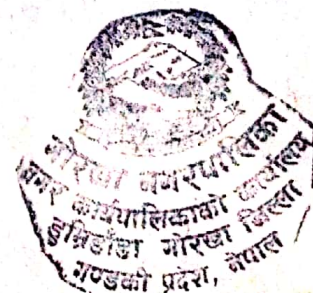 गोरखा नगरपालिका
नगर कार्यपालिकाको कार्यालय
डुम्रिडाँडा गोरखा जिल्ला
गण्डकी प्रदेश, नेपाल